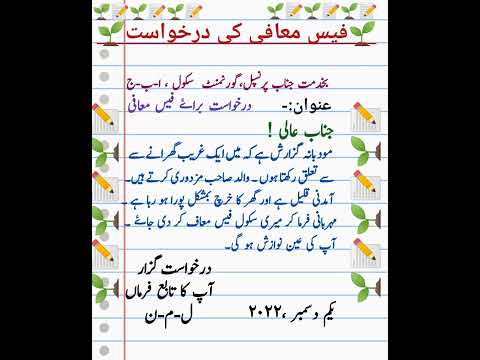 فیس معافی کی درخواست
بخدمت جناب پرنسپل، گورنمنٹ سکول ، ا-ب-ج
عنوان:- درخواست برائے فیس معافی
جناب عالی !
مودبانہ گزارش ہے کہ میں ایک غریب گھرانے سے
سے تعلق رکھتا ہوں۔ والد صاحب مزدوری کرتے ہیں۔
آمدنی قلیل ہے اور گھر کا خرچ بمشکل پورا ہو رہا ہے ۔
مہربانی فرما کر میری سکول فیس معاف کر دی جائے ۔
آپ کی عین نوازش ہو گی۔
درخواست گزار
آپ کا تابع فرماں
ل-م-ن
یکم دسمبر ،۲۰۲۲